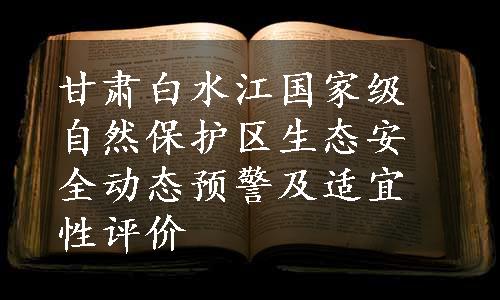 甘肃白水江国家级
自然保护区生态安
全动态预警及适宜
性评价